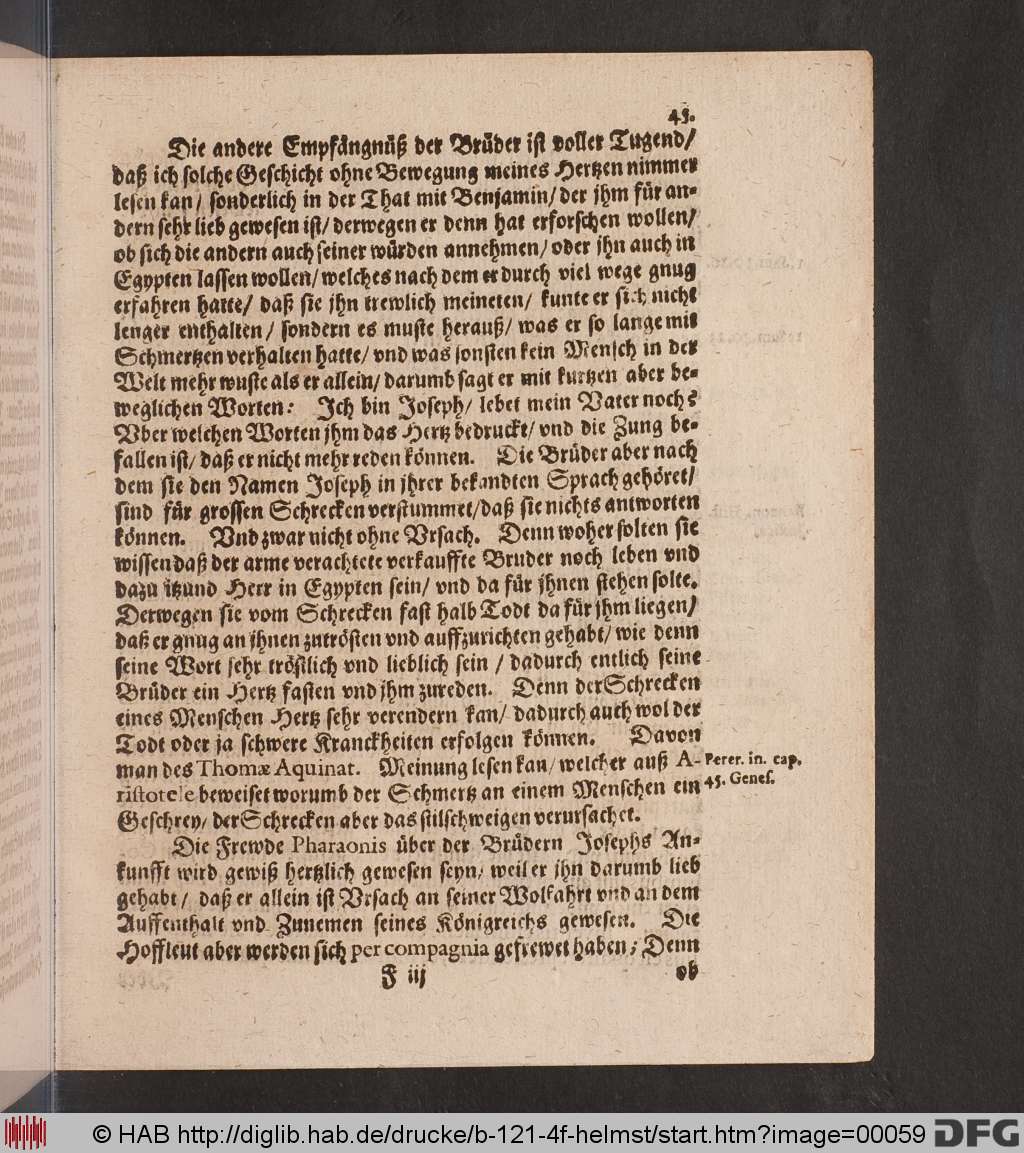 45.
Die andere Empfängnüß der Brüder ist voller Tugend/
daß ich solche Geschicht ohne Bewegung meines Hertzen nimmer
lesen kan/ sonderlich in der That mit Benjamin/ der jhm für an-
dern sehr lieb gewesen ist/ derwegen er denn hat erforschen wollen/
ob sich die andern auch seiner würden annehmen/ oder jhn auch in
Egypten lassen wollen/ welches nach dem er durch viel wege gnug
erfahren hatte/ daß sie jhn trewlich meineten/ kunte er sich nicht
lenger enthalten/ sondern es muste herauß/ was er so lange mit
Schmertzen verhalten hatte/ vnd was sonsten kein Mensch in der
Welt mehr wuste als er allein/ darumb sagt er mit kurtzen aber be-
weglichen Worten: Ich bin Joseph/ lebet mein Vater noch?
Vber welchen Worten jhm das Hertz bedruckt/ vnd die Zung be-
fallen ist/ daß er nicht mehr reden können. Die Brüder aber nach
dem sie den Namen Joseph in jhrer bekandten Sprach gehöret/
sind für grossen Schrecken verstummet/ daß sie nichts antworten
können. Vnd zwar nicht ohne Vrsach. Denn woher solten sie
wissen daß der arme verachtete verkauffte Bruder noch leben vnd
dazu itzund Herr in Egypten sein/ vnd da für jhnen stehen solte.
Derwegen sie vom Schrecken fast halb Todt da für jhm liegen/
daß er gnug an jhnen zutrösten vnd auffzurichten gehabt/ wie denn
seine Wort sehr tröstlich vnd lieblich sein / dadurch entlich seine
Brüder ein Hertz fasten vnd jhm zureden. Denn der Schrecken
eines Menschen Hertz sehr verendern kan/ dadurch auch wol der
Todt oder ja schwere Kranckheiten erfolgen können. Davon
man des Thomæ Aquinat. Meinung lesen kan/ welcher auß A-
ristotele beweiset worumb der Schmertz an einem Menschen ein
Geschrey/ der Schrecken aber das stilschweigen verursachet.
Perer. in. cap.
45. Genes.
Die Frewde Pharaonis über der Brüdern Josephs An-
kunfft wird gewiß hertzlich gewesen seyn/ weil er jhn darumb lieb
gehabt/ daß er allein ist Vrsach an seiner Wolfahrt vnd an dem
Auffenthalt vnd Zunemen seines Königreichs gewesen. Die
Hoffleut aber werden sich per compagnia gefrewet haben; Denn
F iij
ob
© HAB http://diglib.hab.de/drucke/b-121-4f-helmst/start.htm?image=00059
DFG